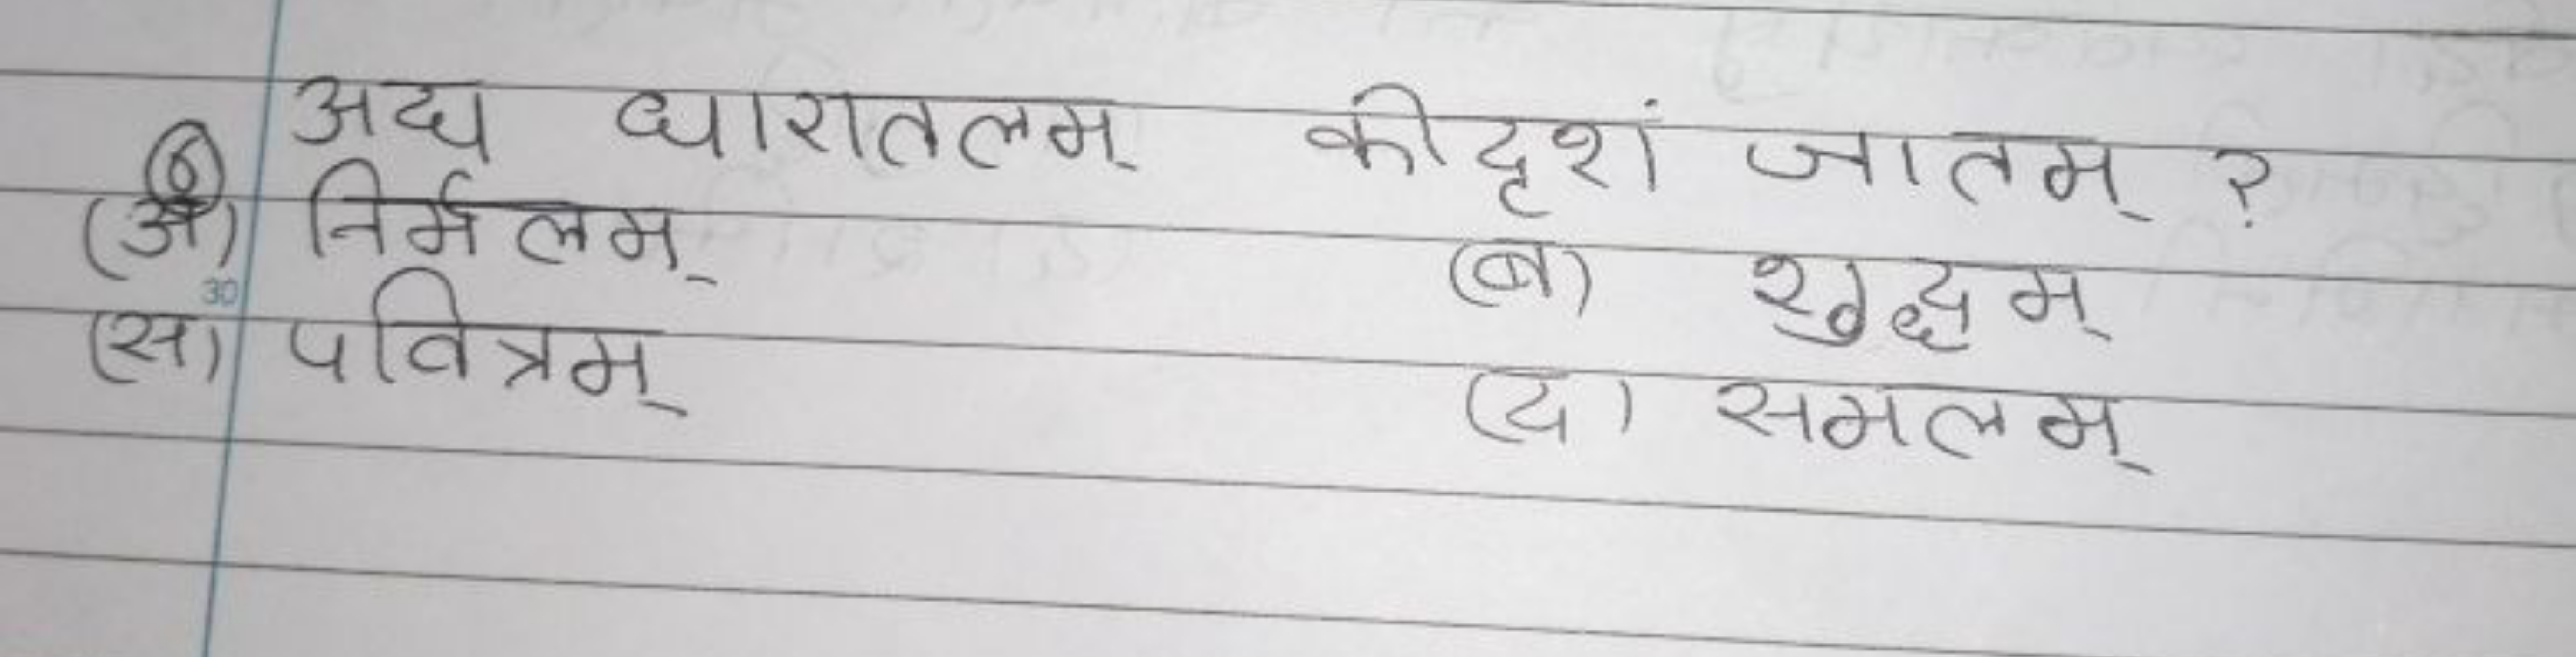 अद्य धारातलम् कीदृशं जातम् ?
(अ) निर्मलम् (ब) शुद्धम्
(स) पवित्रम् (द) समलम्
30